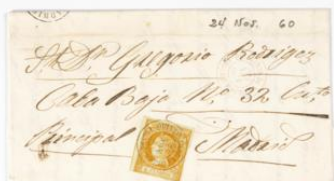 24 Nov. 60
Sr. Dn. Gregorio Rodrigez
Caba Baja No. 32 Cuto.
Principal Madrid